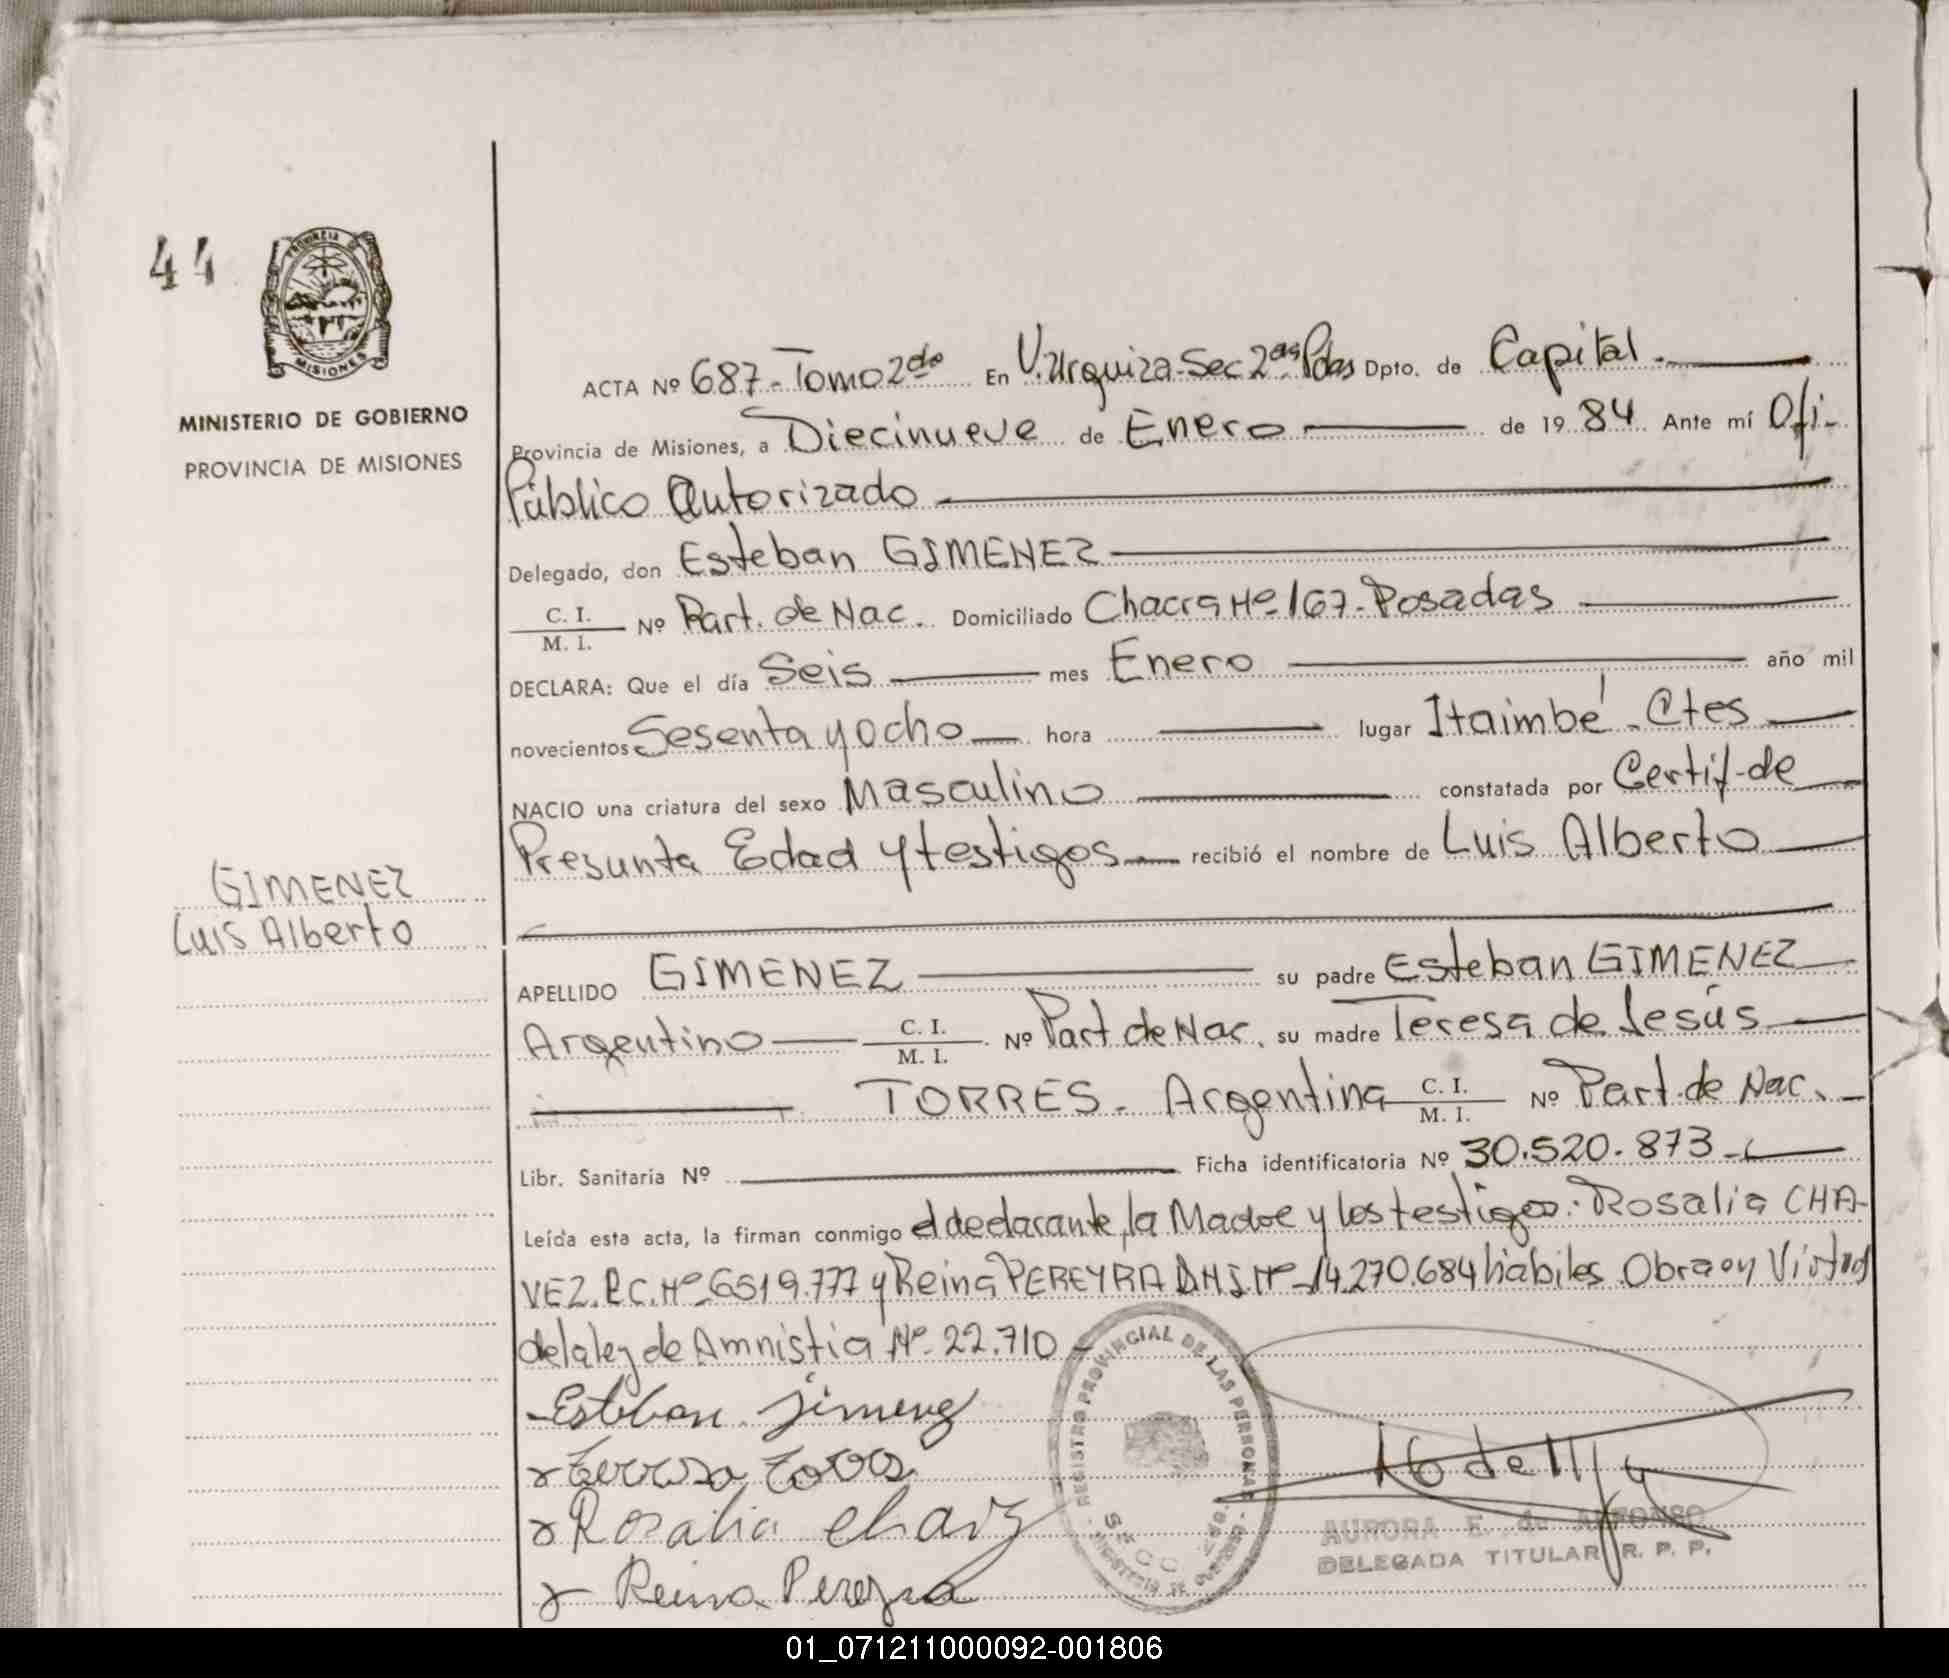 44
PROVINCIA DE
MISIONES
MINISTERIO DE GOBIERNO
PROVINCIA DE MISIONES
GIMENEZ
Luis Alberto
ACTA Nº 687-Tomo 2do En V. Urquiza-Sec 2as Pdas Dpto. de Capital.
Provincia de Misiones, a Diecinueve de Enero de 1984 Ante mí Ofi-
Público Autorizado
Delegado, don Esteban GIMENEZ
C. I.
M. I. Nº Part. de Nac. Domiciliado Chacra Nº 167-Posadas
DECLARA: Que el día Seis mes Enero año mil
novecientos Sesenta y ocho hora lugar Itaimbé-Ctes
NACIO una criatura del sexo Masculino constatada por Certif-de
Presunta Edad y testigos recibió el nombre de Luis Alberto
APELLIDO GIMENEZ su padre Esteban GIMENEZ
Argentino C. I. M. I. Nº Part de Nac. su madre Teresa de Jesús
TORRES- Argentina C. I. M. I. Nº Part. de Nac.
Libr. Sanitaria Nº Ficha identificatoria Nº 30.520.873
Leída esta acta, la firman conmigo el declarante, la Madre y los testigos: Rosalia CHA-
VEZ. Nº 6519.777 y Reina PEREYRA D.N.I. Nº 14.270.684 hábiles. Obra en Virtud
de la ley de Amnistia Nº 22.710
Esteban Jimenez
Teresa Torres
Rosalia Chavez
Reina Pereyra
REGISTRO PROVINCIAL DE LAS PERSONAS
MINISTERIO DE GOBIERNO
AURORA E. de ALFONSO
DELEGADA TITULAR R. P. P.
01_071211000092-001806